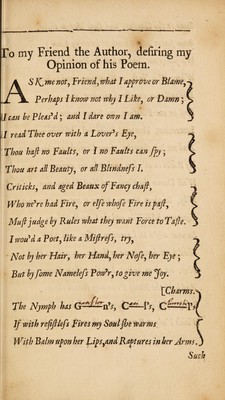 To my Friend the Author, desiring my
Opinion of his Poem.
ASK me not, Friend, what I approve or Blame,
Perhaps I know not why I Like, or Damn;
I can be Pleas'd; and I dare own I am.
I read Thee over with a Lover's Eye,
Thou hast no Faults, or I no Faults can spy;
Thou art all Beauty, or all Blindness I.
Criticks, and aged Beaux of Fancy chast,
Who ne're had Fire, or else whose Fire is past,
Must judge by Rules what they want Force to Taste.
I wou'd a Poet, like a Mistress, try,
Not by her Hair, her Hand, her Nose, her Eye;
But by some Nameless Pow'r, to give me Joy.
[Charms.
The Nymph has G n's, C l's, C l's
If with resistless Fires my Soul she warms
With Balm upon her Lips, and Raptures in her Arms.
Such